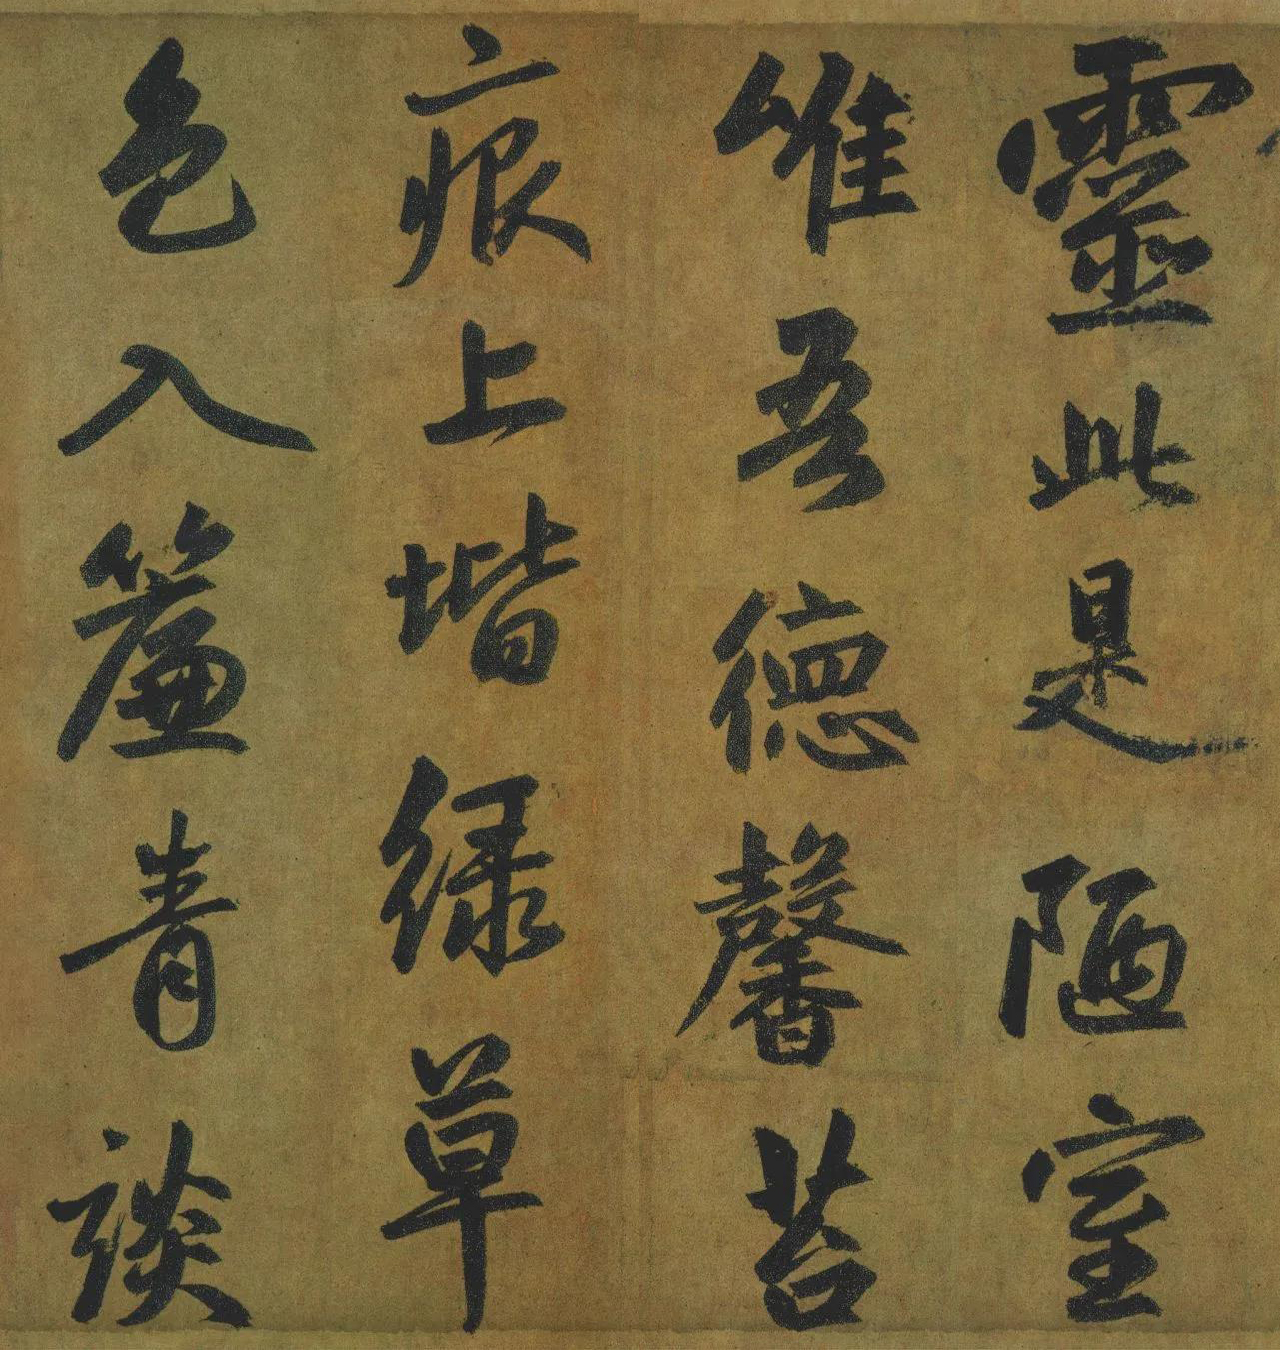 靈此是陋室
唯吾德馨苔
痕上堦緑草
色入簾青談